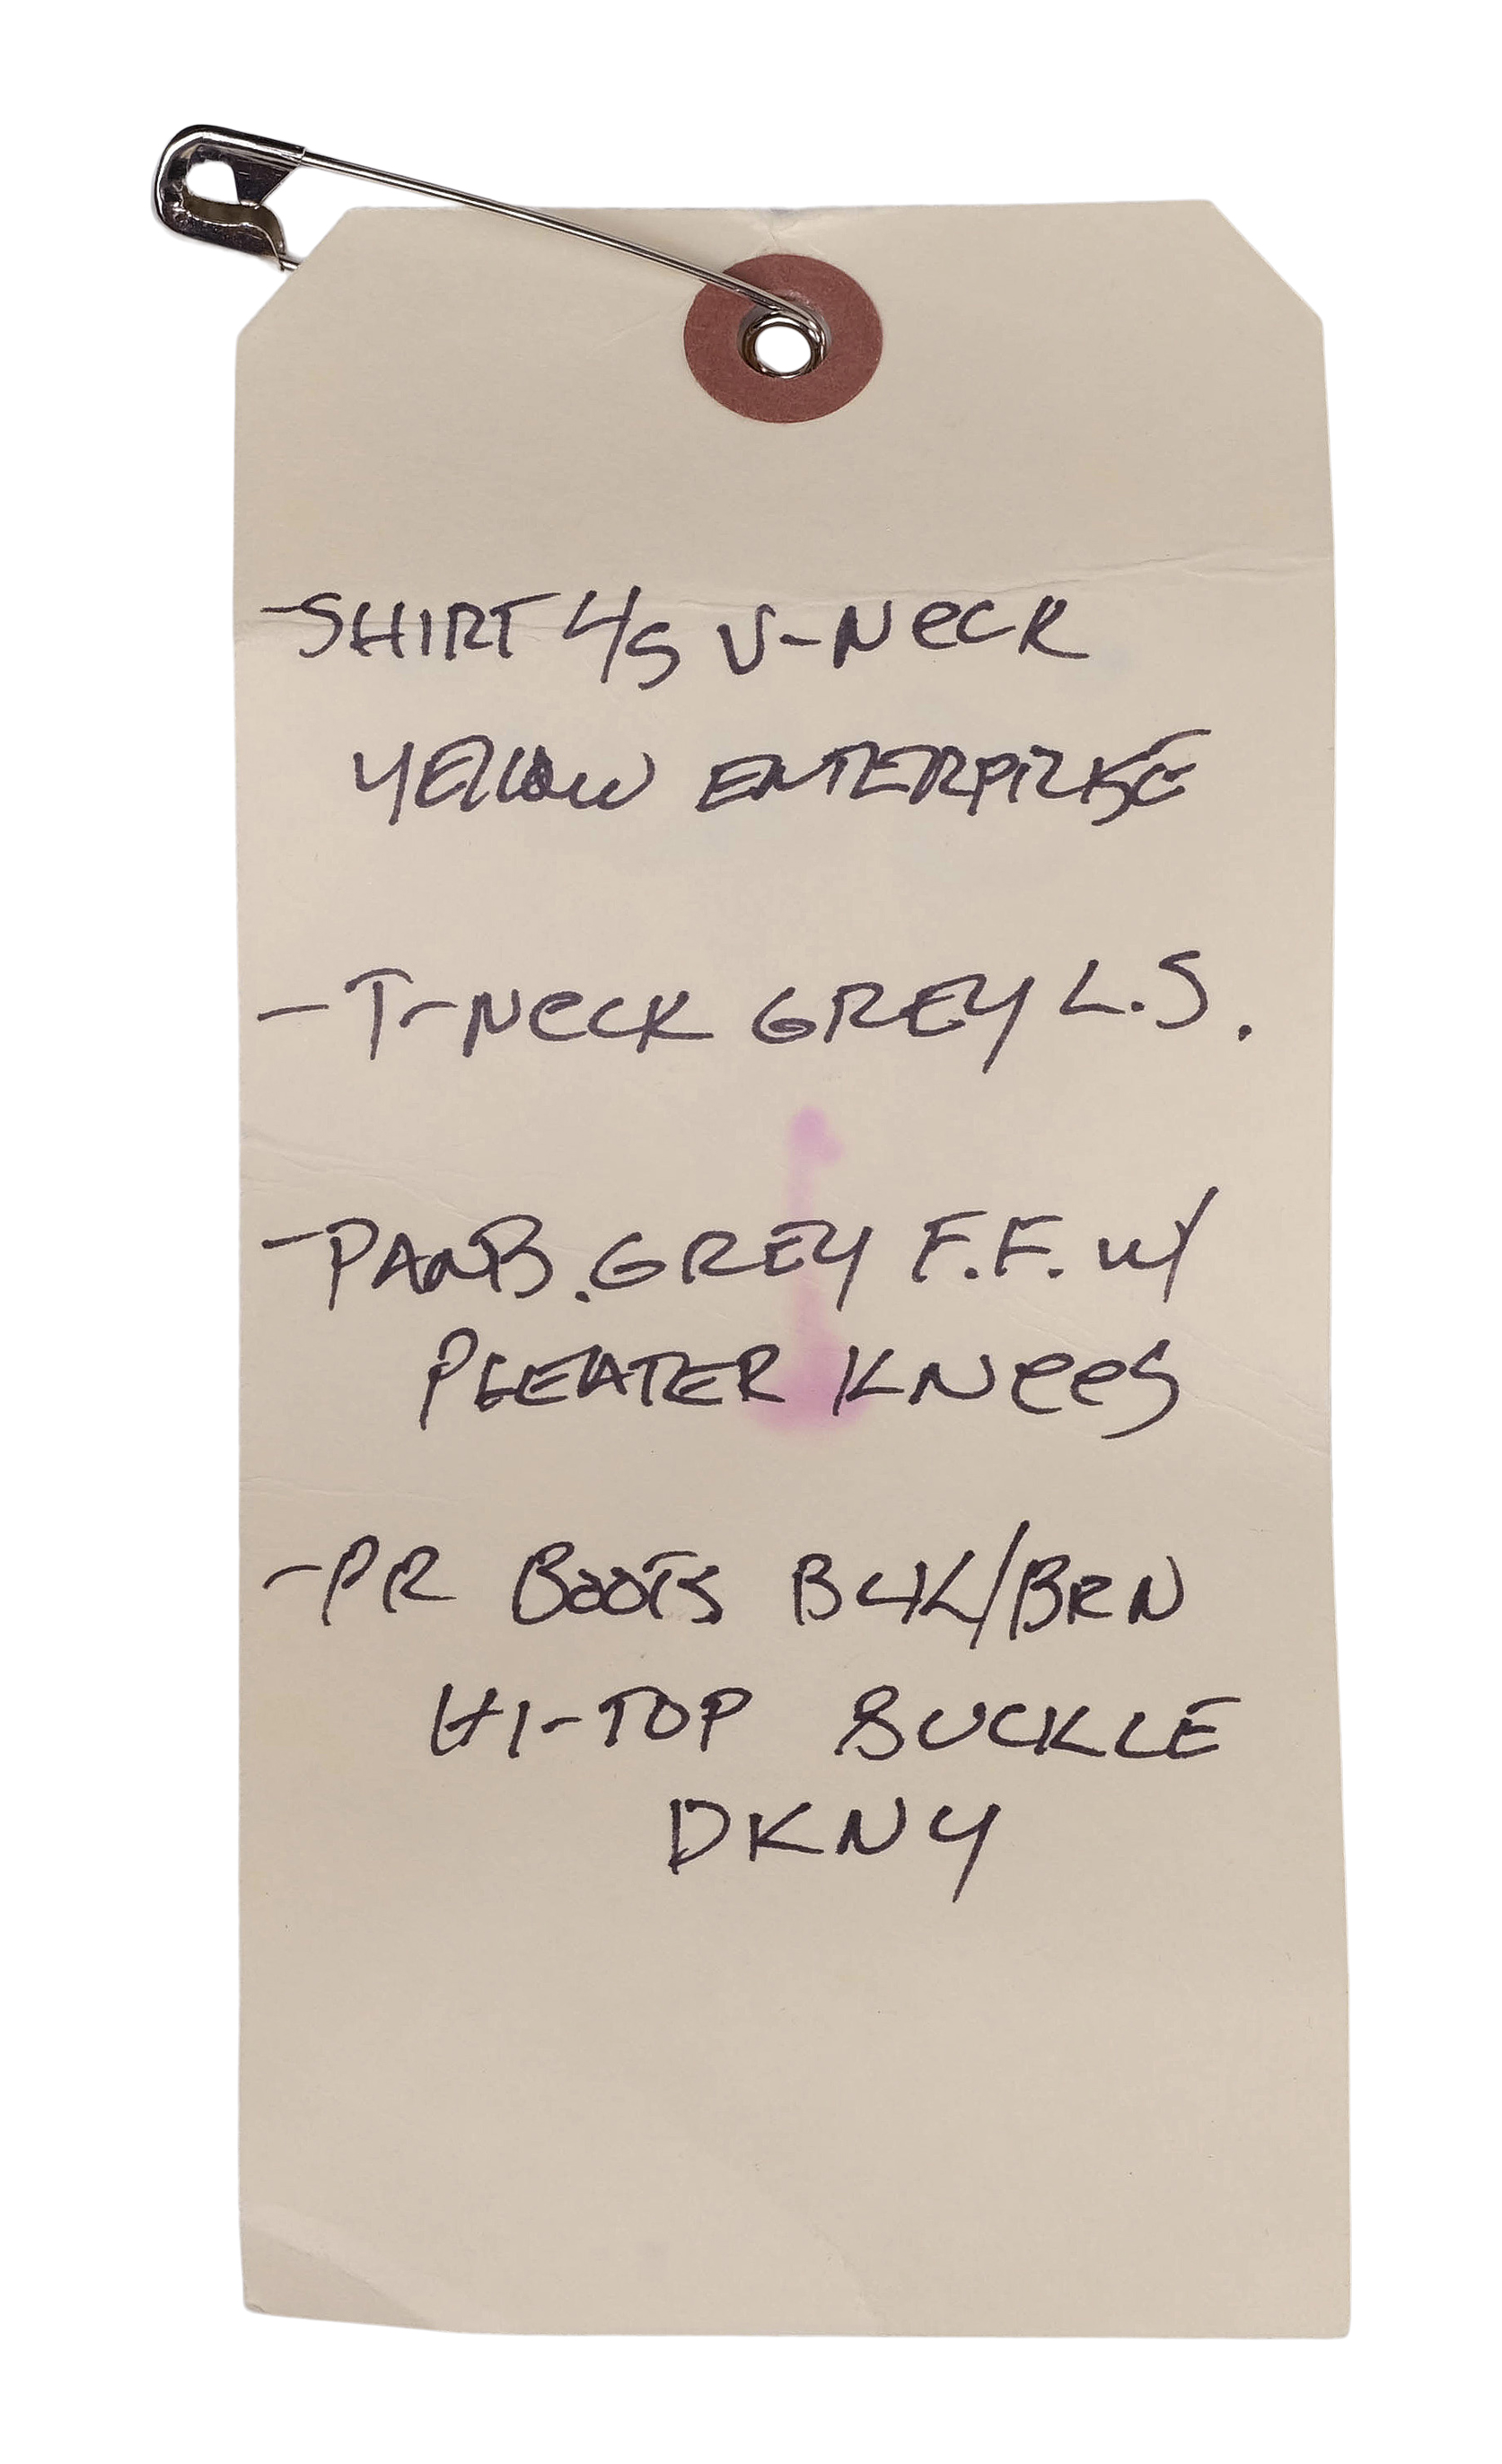 -SHIRT L/S V-NECK
YELLOW ENTERPRISE
-T-NECK GREY L.S.
-PANTS. GREY F.F. W/
PLEATED KNEES
-PR BOOTS BLK/BRN
HI-TOP BUCKLE
DKNY